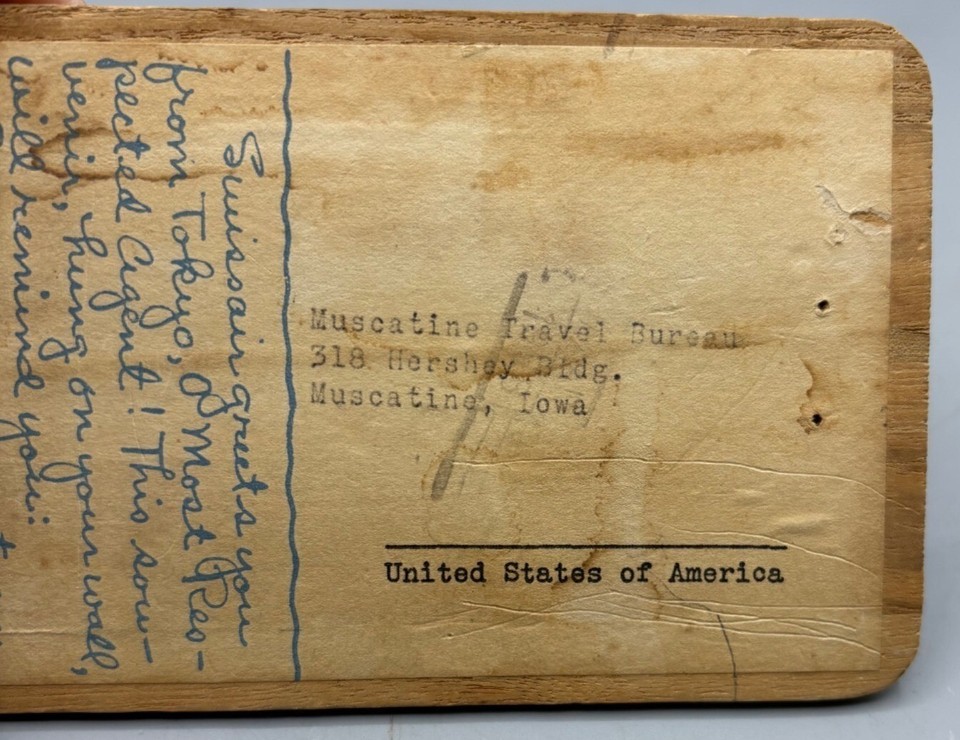 Swissair greets you
from Tokyo, O Most Res-
pected Agent! This sou-
venir, hung on your wall,
will remind you:
Muscatine Travel Bureau
318 Hershey Bldg.
Muscatine, Iowa
United States of America